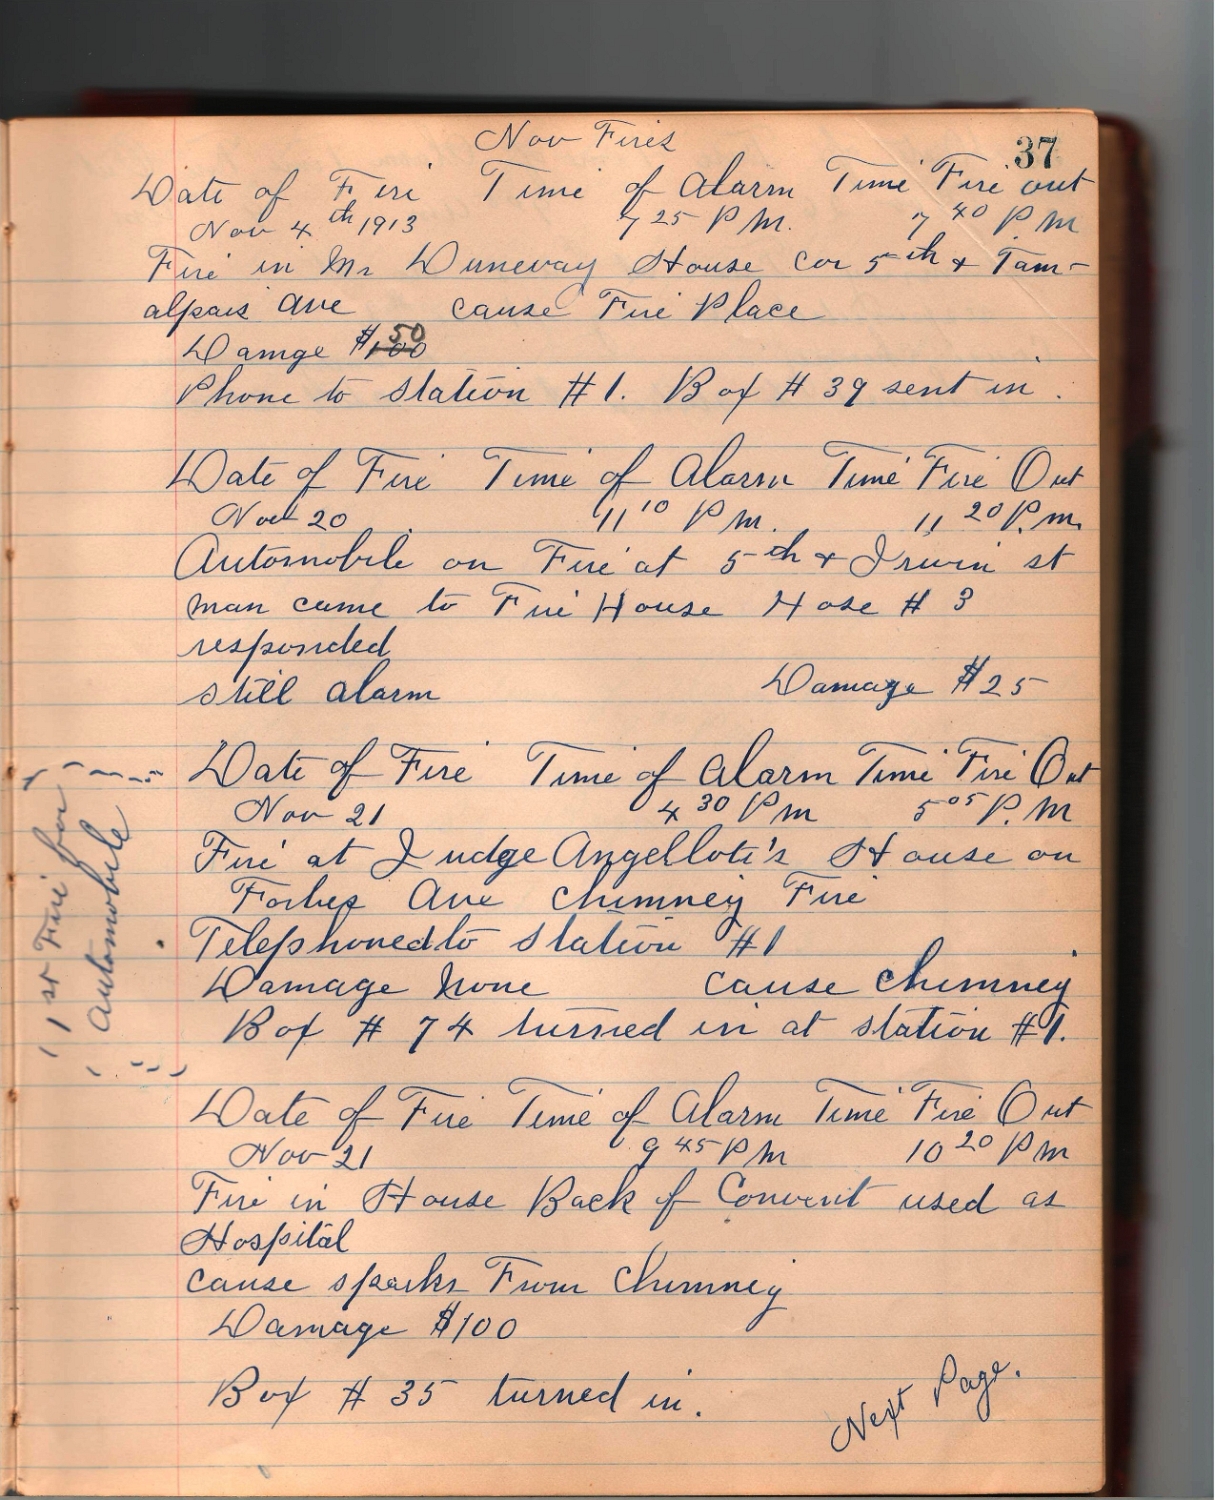 Nov Fires
37
Date of Fire Time of Alarm Time Fire out
Nov 4th 1913 7 25 P M. 7 40 P. M
Fire in Mr Dunevay House cor 5th & Tam-
alpais Ave cause Fire Place
Damge $100 50
Phone to Station #1. Box # 39 sent in.
Date of Fire Time of Alarm Time Fire Out
Nov 20 11 10 P m. 11 20 P. m.
Automobile on Fire at 5th & Irwin st
man came to Fire House Hose # 3
responded
still alarm Damage $25
Date of Fire Time of Alarm Time Fire Out
Nov 21 4 30 P m 5 05 P. M
Fire at Judge Angelloti's House on
Forbes Ave Chimney Fire
Telephoned to Station #1
Damage None cause Chimney
Box # 74 turned in at station #1.
1st Fire for
Automobile
Date of Fire Time of Alarm Time Fire Out
Nov 21 9 45 P M 10 20 P M
Fire in House Back of Convent used as
Hospital
cause sparks From Chimney
Damage $100
Box # 35 turned in.
Next Page.